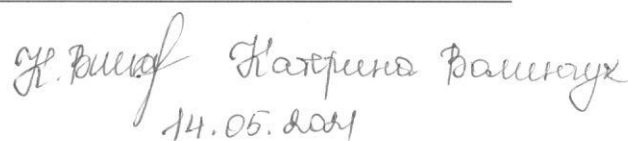 Катерина Волинчук
14.05.2021